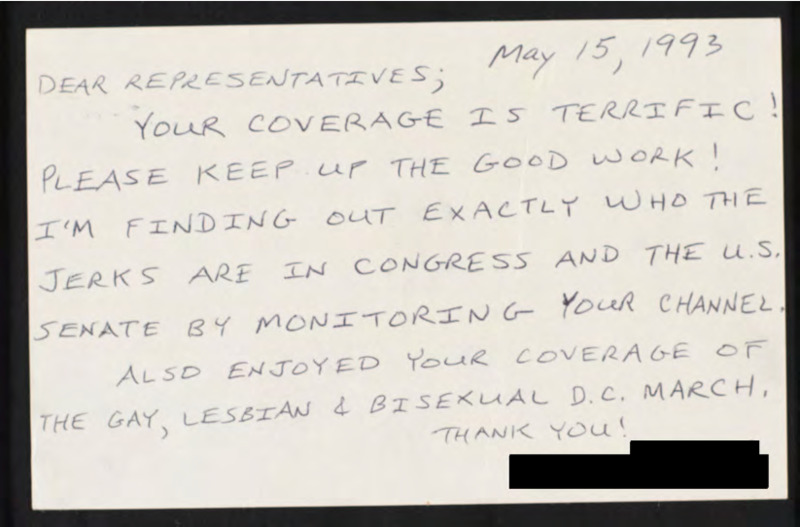 May 15, 1993
DEAR REPRESENTATIVES;
YOUR COVERAGE IS TERRIFIC!
PLEASE KEEP UP THE GOOD WORK!
I'M FINDING OUT EXACTLY WHO THE
JERKS ARE IN CONGRESS AND THE U.S.
SENATE BY MONITORING YOUR CHANNEL.
ALSO ENJOYED YOUR COVERAGE OF
THE GAY, LESBIAN & BISEXUAL D.C. MARCH.
THANK YOU!